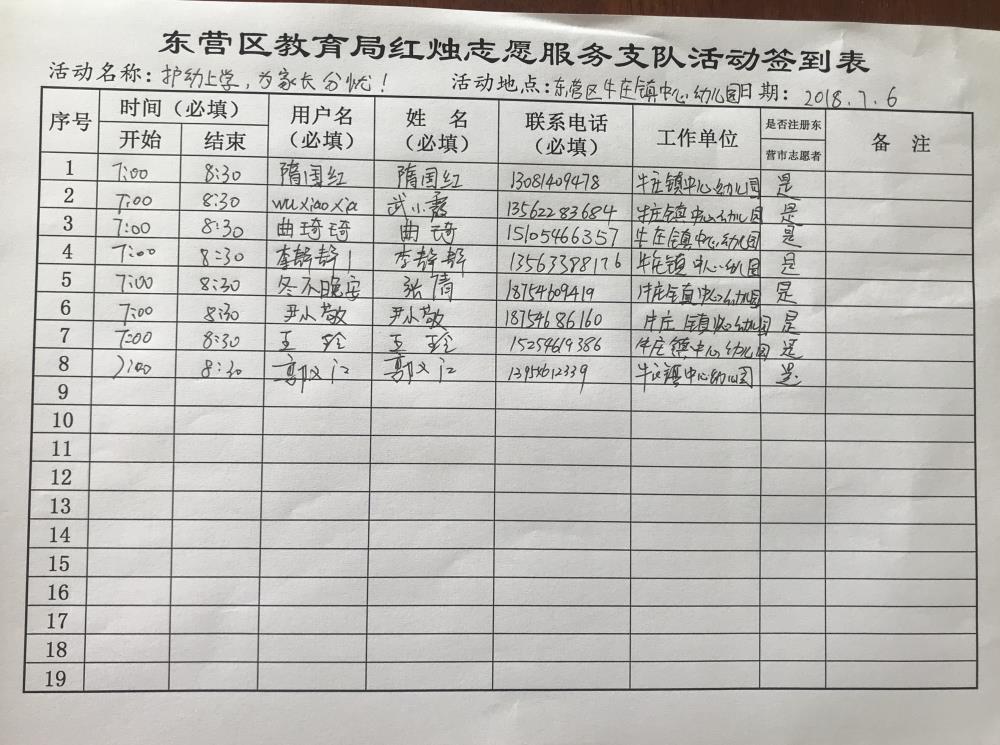 东营区教育局红烛志愿服务支队活动签到表
活动名称：护幼上学，为家长分忧！ 活动地点：东营区牛庄镇中心幼儿园 日期：2018.7.6
序号 时间（必填） 用户名（必填） 姓 名（必填） 联系电话（必填） 工作单位 是否注册东营市志愿者 备 注
开始 结束
1 7:00 8:30 隋国红 隋国红 13081409478 牛庄镇中心幼儿园 是
2 7:00 8:30 wuxiaoxia 武小霞 13562283684 牛庄镇中心幼儿园 是
3 7:00 8:30 曲琦琦 曲琦 15105466357 牛庄镇中心幼儿园 是
4 7:00 8:30 李静静1 李静静 13563388176 牛庄镇中心幼儿园 是
5 7:00 8:30 冬不晚安 张倩 18754609419 牛庄镇中心幼儿园 是
6 7:00 8:30 尹小敬 尹小敬 18754686160 牛庄镇中心幼儿园 是
7 7:00 8:30 王玲 王玲 15254619386 牛庄镇中心幼儿园 是
8 7:00 8:30 郭 江 郭 江 牛庄镇中心幼儿园 是
9
10
11
12
13
14
15
16
17
18
19